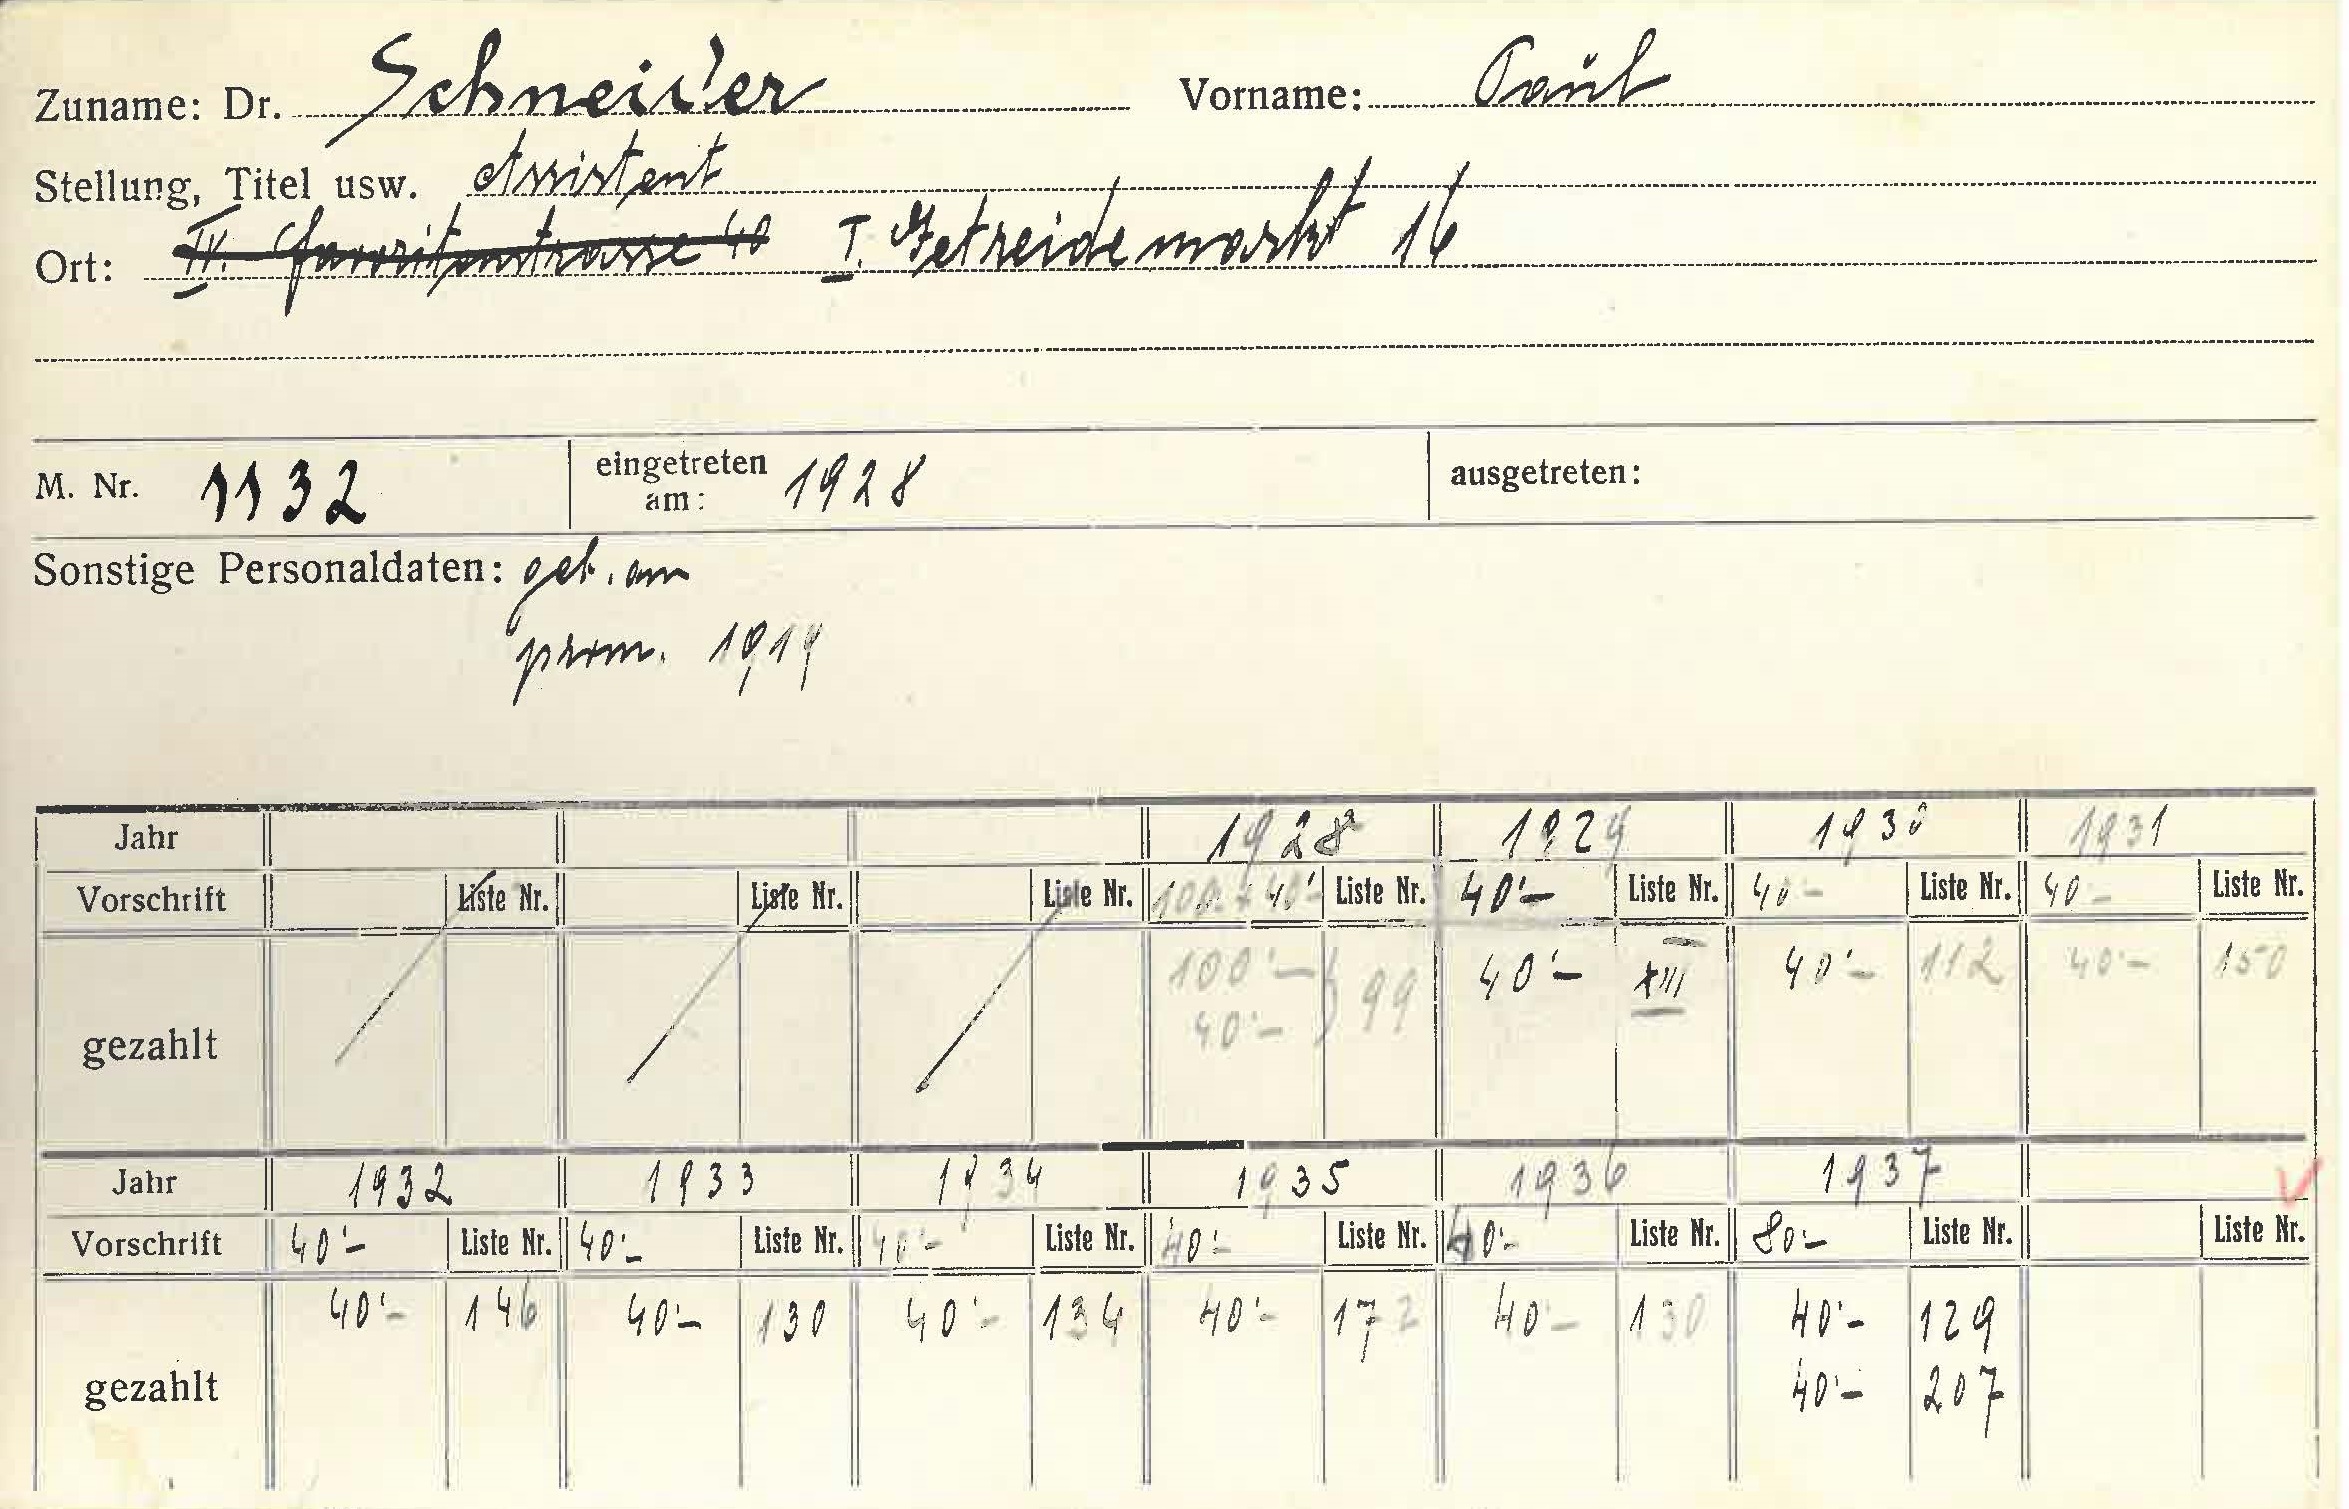 Zuname: Dr. Schneider Vorname: Paul
Stellung, Titel usw. Assistent
Ort: IV. Favoritenstrasse 40 I. Getreidemarkt 16
M. Nr. 1132 eingetreten am: 1928 ausgetreten:
Sonstige Personaldaten: geb. am
prom. 1919
Jahr 1928 1929 1930 1931
Vorschrift Liste Nr. Liste Nr. Liste Nr. 100.- + 40'- Liste Nr. 40'- Liste Nr. 40- Liste Nr. 40- Liste Nr.
gezahlt 100'- 40'- } 99 40'- XIII 40'- 112 40'- 150
Jahr 1932 1933 1934 1935 1936 1937
Vorschrift 40'- Liste Nr. 40'- Liste Nr. 40'- Liste Nr. 40'- Liste Nr. 40'- Liste Nr. 80'- Liste Nr. Liste Nr.
gezahlt 40'- 146 40'- 130 40'- 134 40'- 172 40'- 130 40'- 129
40'- 207